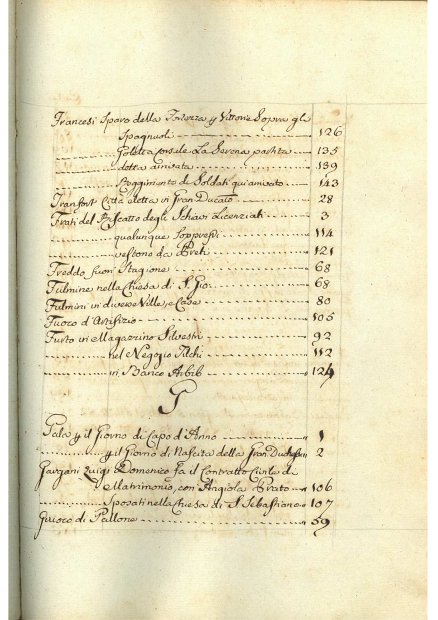 Francesi Sparo della Fortezza p Vittorie Sopra gli
Spagnuoli 126
Goletta corsale La Serena partita 135
detta arrivata 139
Reggimento di Soldati qui arrivato 143
Francfort Città eletta in Gran Ducato 28
Frati del Riscatto degli Schiavi Licenziati 3
qualunque Soppressi 114
vestono da Preti 121
Freddo fuori Stagione 68
Fulmine nella Chiesa di S. Gio: 68
Fulmini in diverse Ville, e Case 80
Fuoco d'Artifizio 105
Furto in Magazzino Silvestri 92
nel Negozio 112
in Banco Aibib 124
G
Gala p il Giorno di Capo d'Anno 1
p il Giorno di Nascita della Gran Duchessa 2
Gargani Luigi Domenico fa il Contratto Civile di
Matrimonio, con Angiola Prato 106
Sposati nella Chiesa di S. Sebastiano 107
Giuoco di Pallone 59